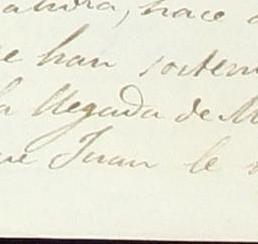 hace
e han sosten
la llegada de M
ue Juan le